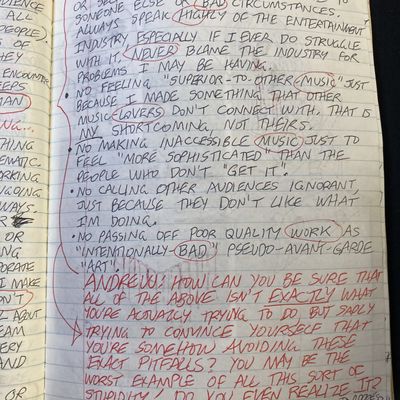 SOMEONE ELSE OR BAD CIRCUMSTANCES.
ALWAYS SPEAK HIGHLY OF THE ENTERTAINMENT
INDUSTRY ESPECIALLY IF I EVER DO STRUGGLE
WITH IT. NEVER BLAME THE INDUSTRY FOR
PROBLEMS I MAY BE HAVING.
• NO FEELING "SUPERIOR-TO-OTHER-MUSIC" JUST
BECAUSE I MADE SOMETHING THAT OTHER
MUSIC LOVERS DON'T CONNECT WITH. THAT IS
MY SHORTCOMING, NOT THEIRS.
• NO MAKING INACCESSIBLE MUSIC JUST TO
FEEL "MORE SOPHISTICATED" THAN THE
PEOPLE WHO DON'T "GET IT".
• NO CALLING OTHER AUDIENCES IGNORANT,
JUST BECAUSE THEY DON'T LIKE WHAT
I'M DOING.
• NO PASSING OFF POOR QUALITY WORK AS
"INTENTIONALLY BAD" PSEUDO-AVANT-GARDE
"ART".
ANDREW: HOW CAN YOU BE SURE THAT
ALL OF THE ABOVE ISN'T EXACTLY WHAT
YOU'RE ACTUALLY TRYING TO DO, BUT SADLY
TRYING TO CONVINCE YOURSELF THAT
YOU'RE SOMEHOW AVOIDING THESE
EXACT PITFALLS? YOU MAY BE THE
WORST EXAMPLE OF ALL THIS SORT OF
STUPIDITY! DO YOU EVEN REALIZE IT?